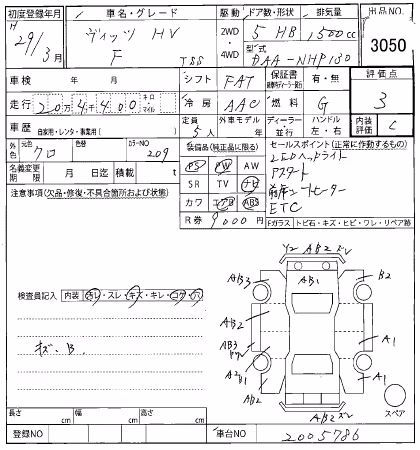 初度登録年月
H 29/3月
車名・グレード
ヴィッツ HV
F TSS
駆動
2WD
・
4WD
ドア数・形状
5 HB
排気量
1,500cc
型式
DAA-NHP130
出品NO.
3050
車検 年 月
シフト FAT
保証書
有・無
評価点
3
走行 20万4400 キロ・マイル
冷房 AAC
燃料 G
車歴 自家用・レンタ・事業用( )
定員 5人
外車モデル 年
ディーラー・並行
ハンドル 左・右
内装評価 C
外色 元色 クロ 色替 カラーNO 209
名義変更期限 月 日迄 積載 t
装備品(純正品に限る)
PS PW サンルーフ
SR TV ナビ
カワ エアB ABS
R券 9000円
セールスポイント(正常に作動するもの)
LEDヘッドライト
Pスタート
前席シートヒーター
ETC
Fガラス・トビ石・キズ・ヒビ・ワレ・リペア跡
注意事項(欠品・修復・不具合箇所および状態)
検査員記入 内装・汚レ・スレ・キズ・キレ・コゲ・穴
キズ・B.
Y2 AB2 ズレ
AB3
AB1
B2
AB2
AB3
A1
A2B1
AB2
A1
AB2 ズレ
スペア
長さ cm 幅 cm 高さ cm
登録NO
車台NO 2005786